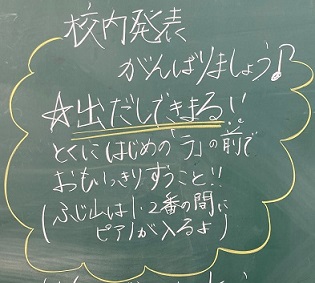 校内発表
がんばりましょう♪
☆出だしできまる!!
とくにはじめの「ラ」の前で
おもいっきりすうこと!!
(ふじ山は1・2番の間に
ピアノが入るよ)